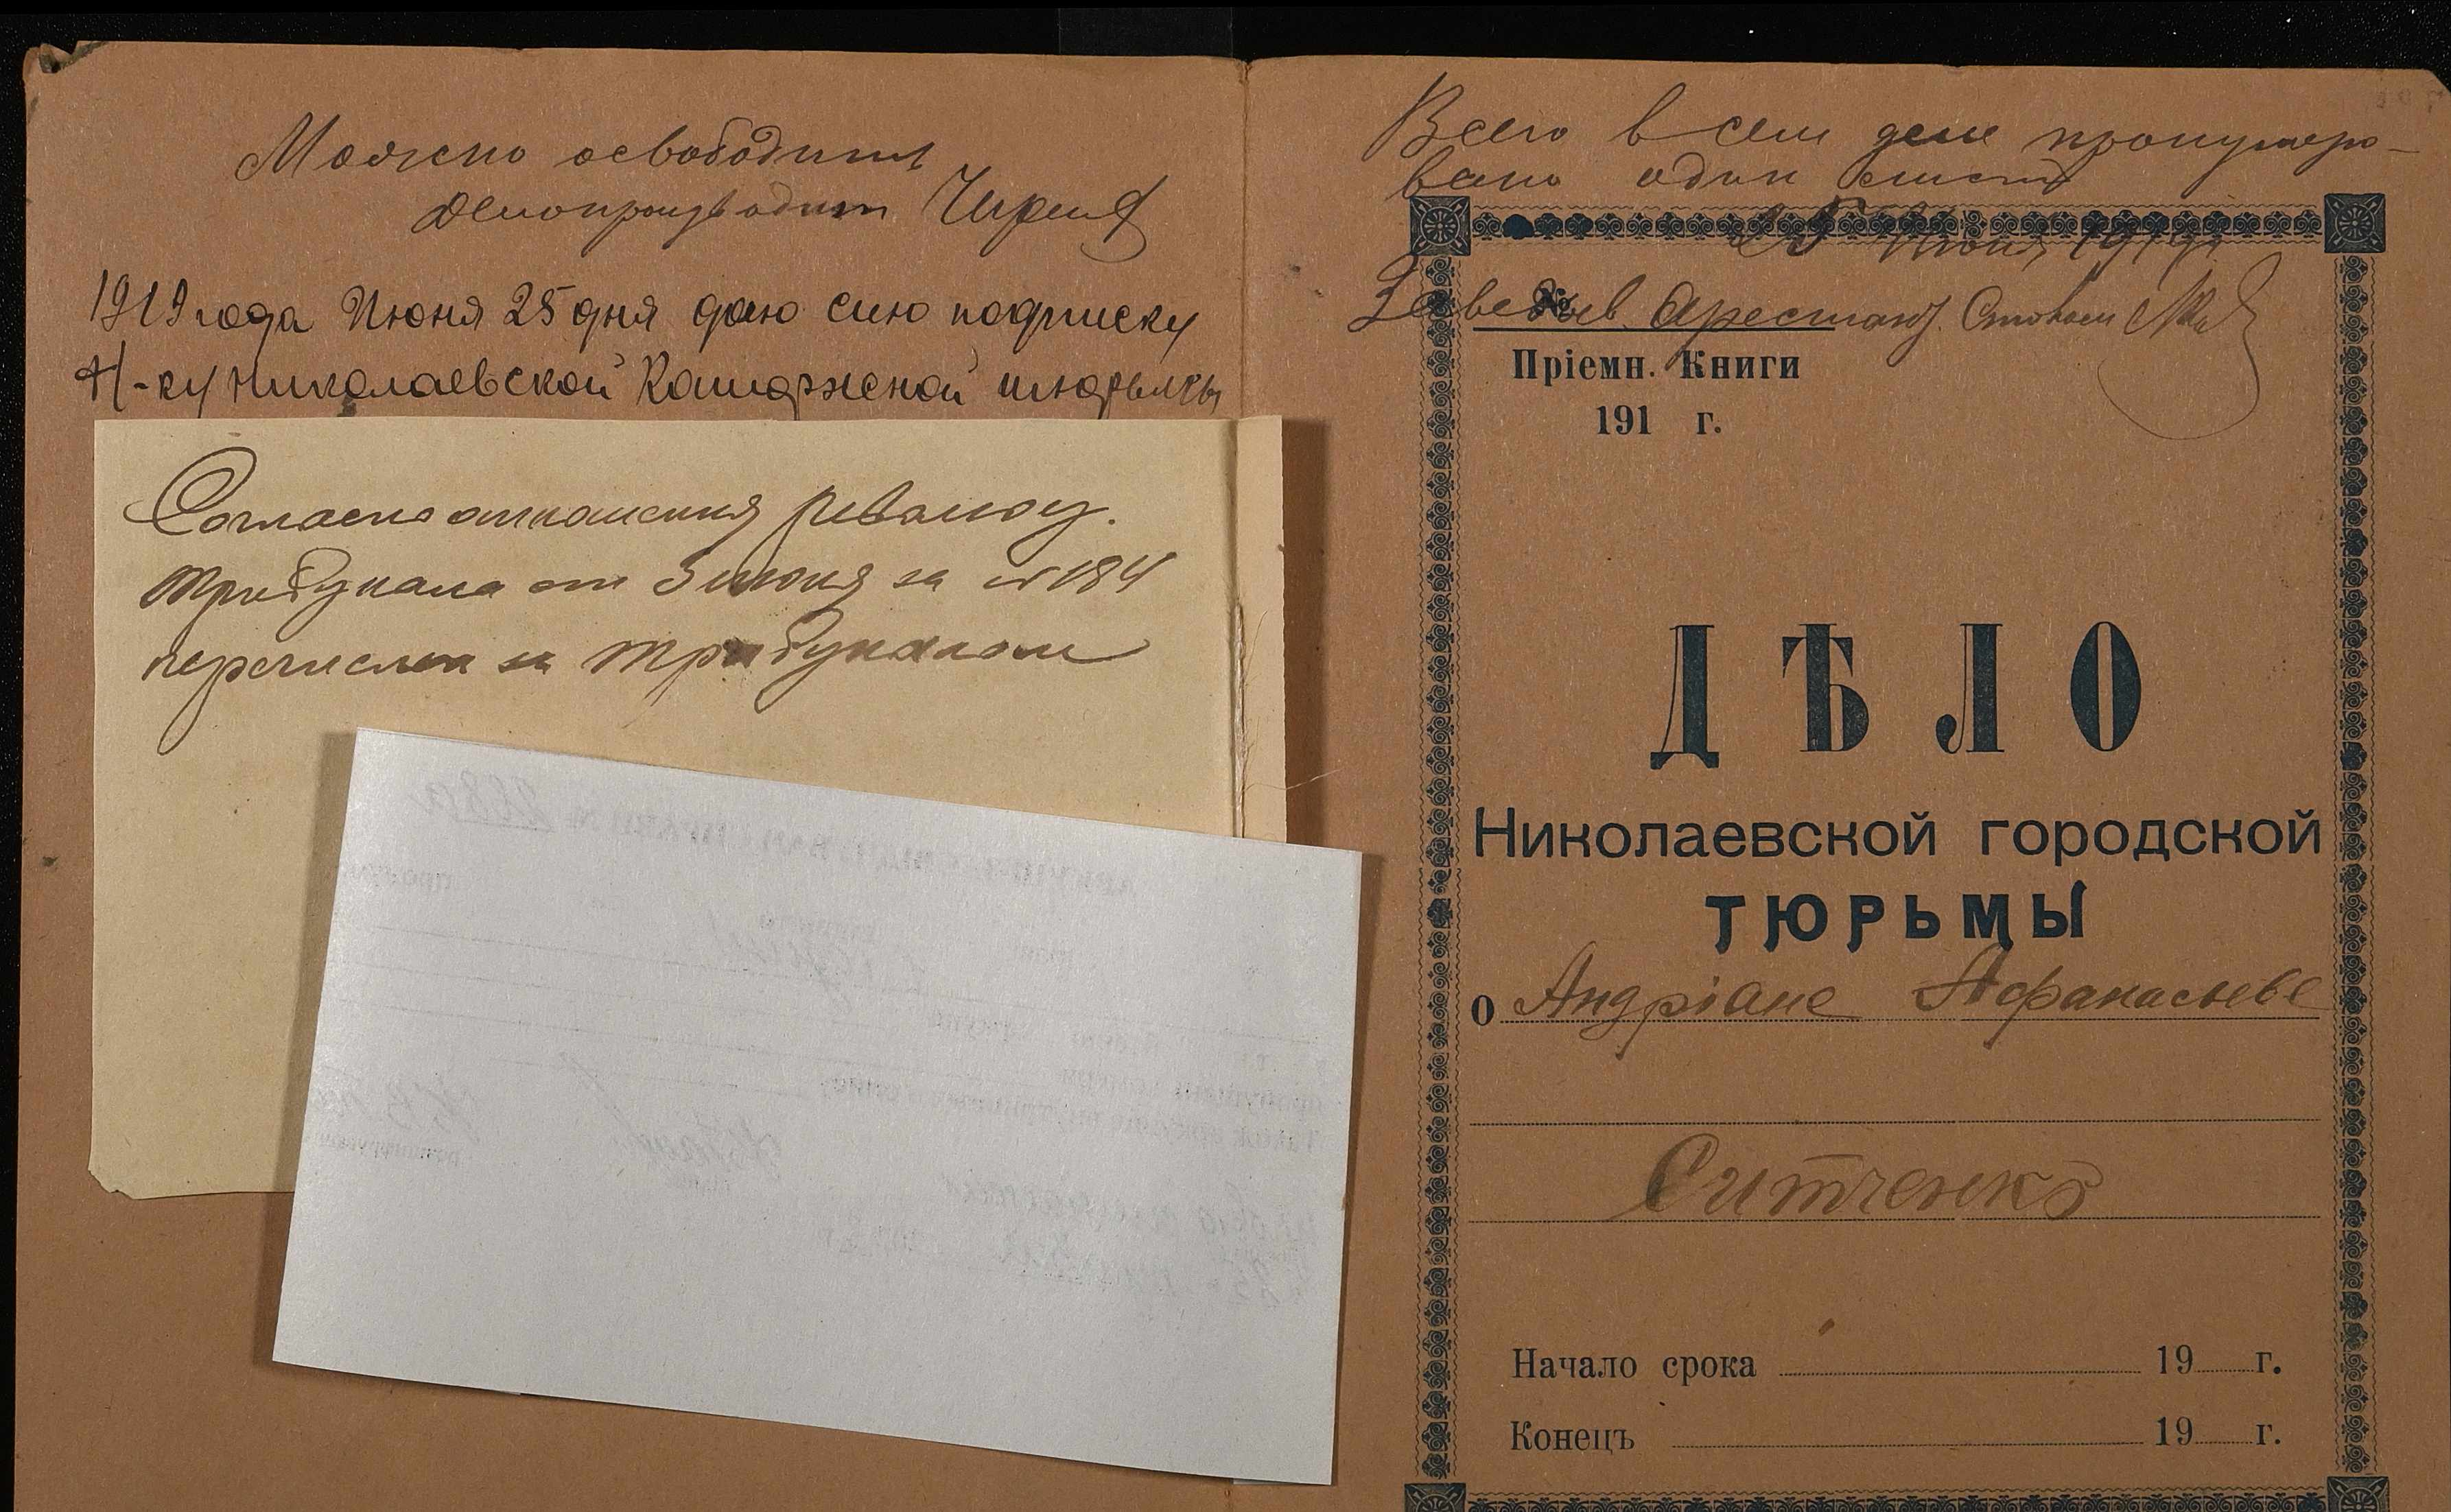 Можно освободить
Делопроизводит
1919 года Июня 25 дня даю сию подписку
Н-ку Николаевской Каторжной тюрьмы
Согласно отношения револ
трибунала от 5 июня за № 184
перечислен за трибуналом
Всего в сем деле пронумеро-
вано один лист
25 Июня 1919 г.
Заведыв. Арестант. Столом
№
Пріемн. Книги
191 г.
ДѢЛО
Николаевской городской
ТЮРЬМЫ
о Андріане Афанасьеве
Ситченко
Начало срока 19 г.
Конецъ 19 г.